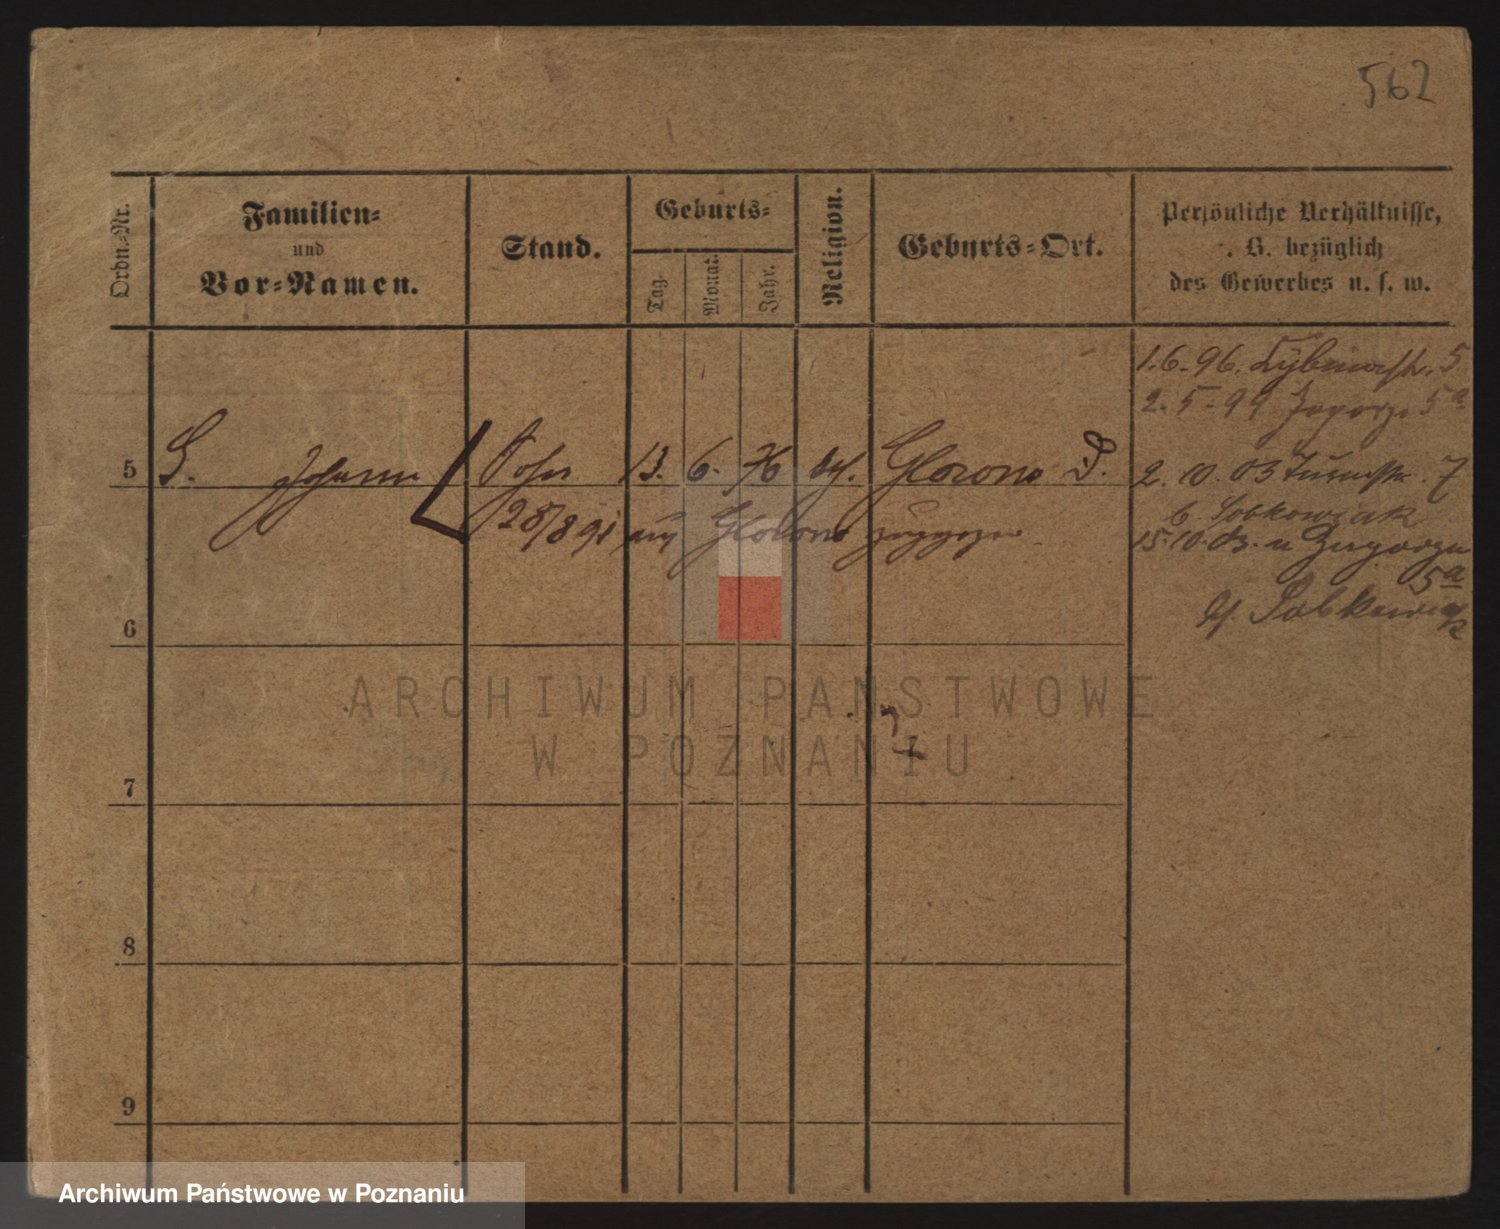 562
Ordn.-Nr.
Familien-
und
Vor-Namen.
Stand.
Geburts-
Tag.
Monat.
Jahr.
Religion.
Geburts-Ort.
Persönliche Verhältnisse,
z. B. bezüglich
des Gewerbes u. s. w.
1.6.96. 5
2.5.99 5a
5 S. Johann Sohn 13. 6. 76 Glowno
2.10.03 7
b Sobkowiak
28/8 91 aus Glowno zugezogen
15.10.03. u Zagorze
5a
b/. Sobkowiak
6
7
8
9
ARCHIWUM PAŃSTWOWE
W POZNANIU
Archiwum Państwowe w Poznaniu